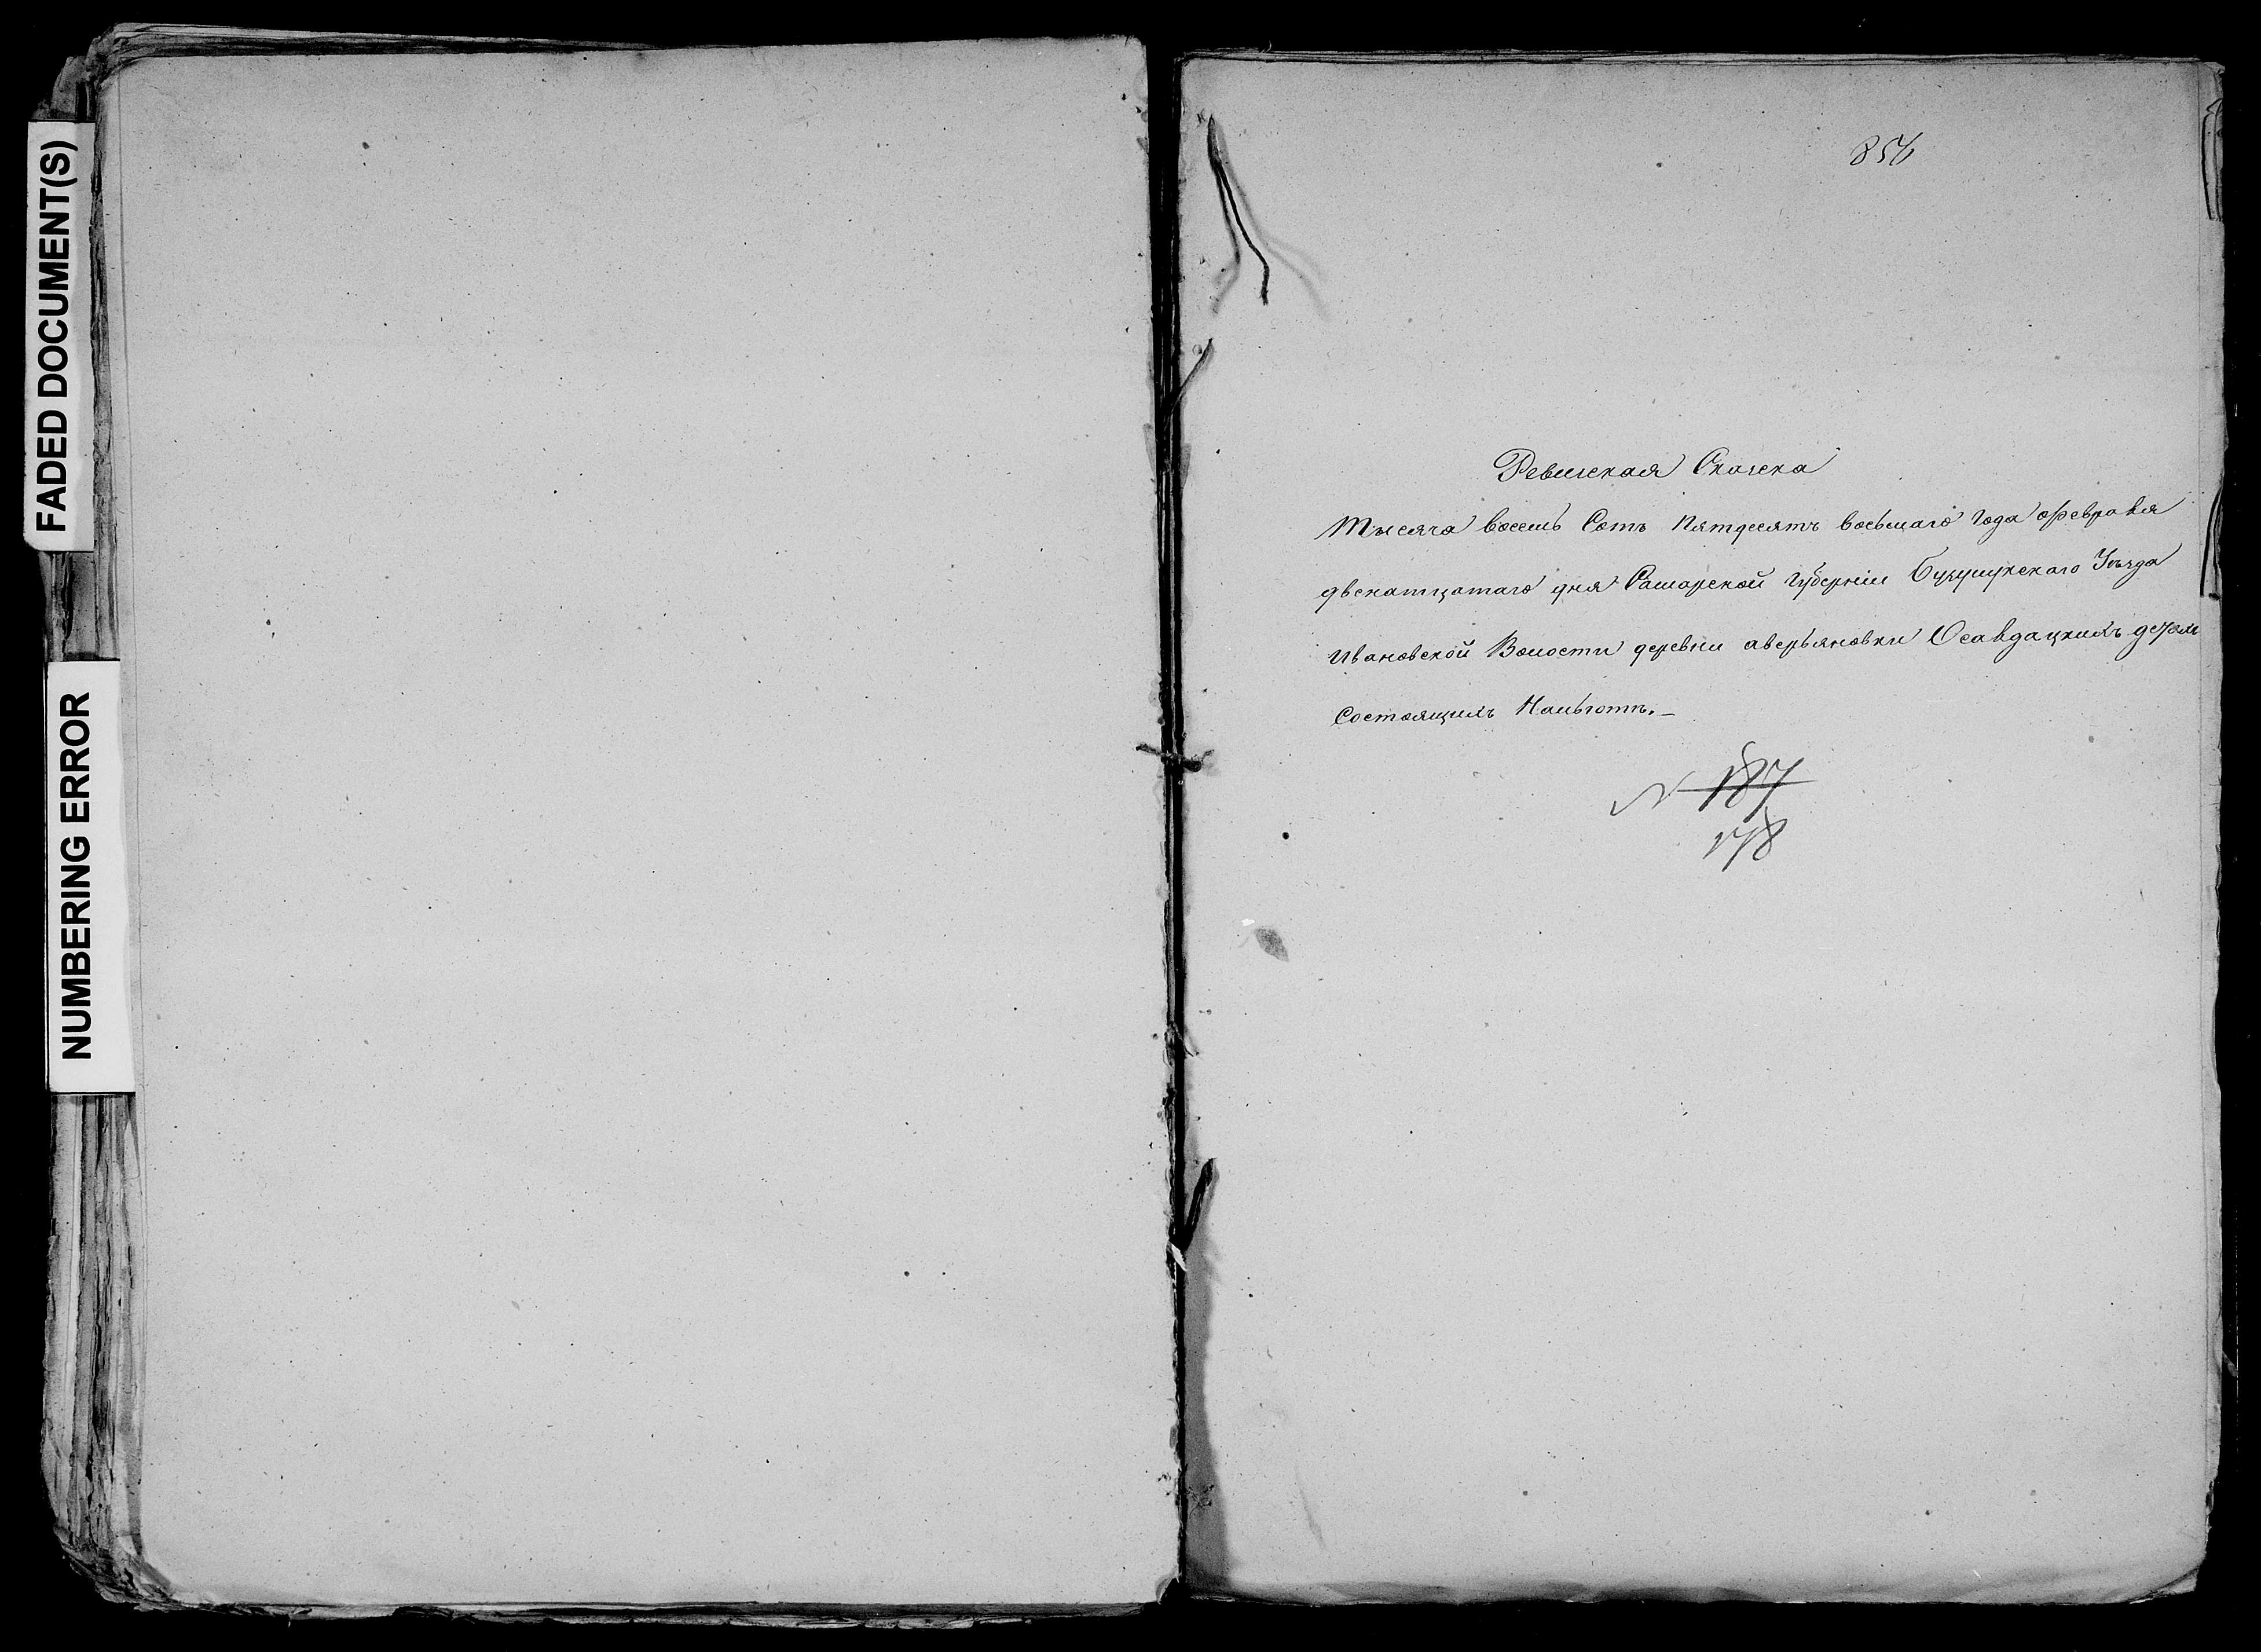 FADED DOCUMENT(S)
NUMBERING ERROR
856
Ревиская Скаска
Тысяча восемь Сотъ пятдесятъ восьмаго года февраля
двенатцатаго дня Самарской губернiи Бузулукскаго Уѣзда
Ивановской Волости деревни аверьяновки Осалдацкихъ детях
Состоящихъ Нальготѣ.
N 187
178